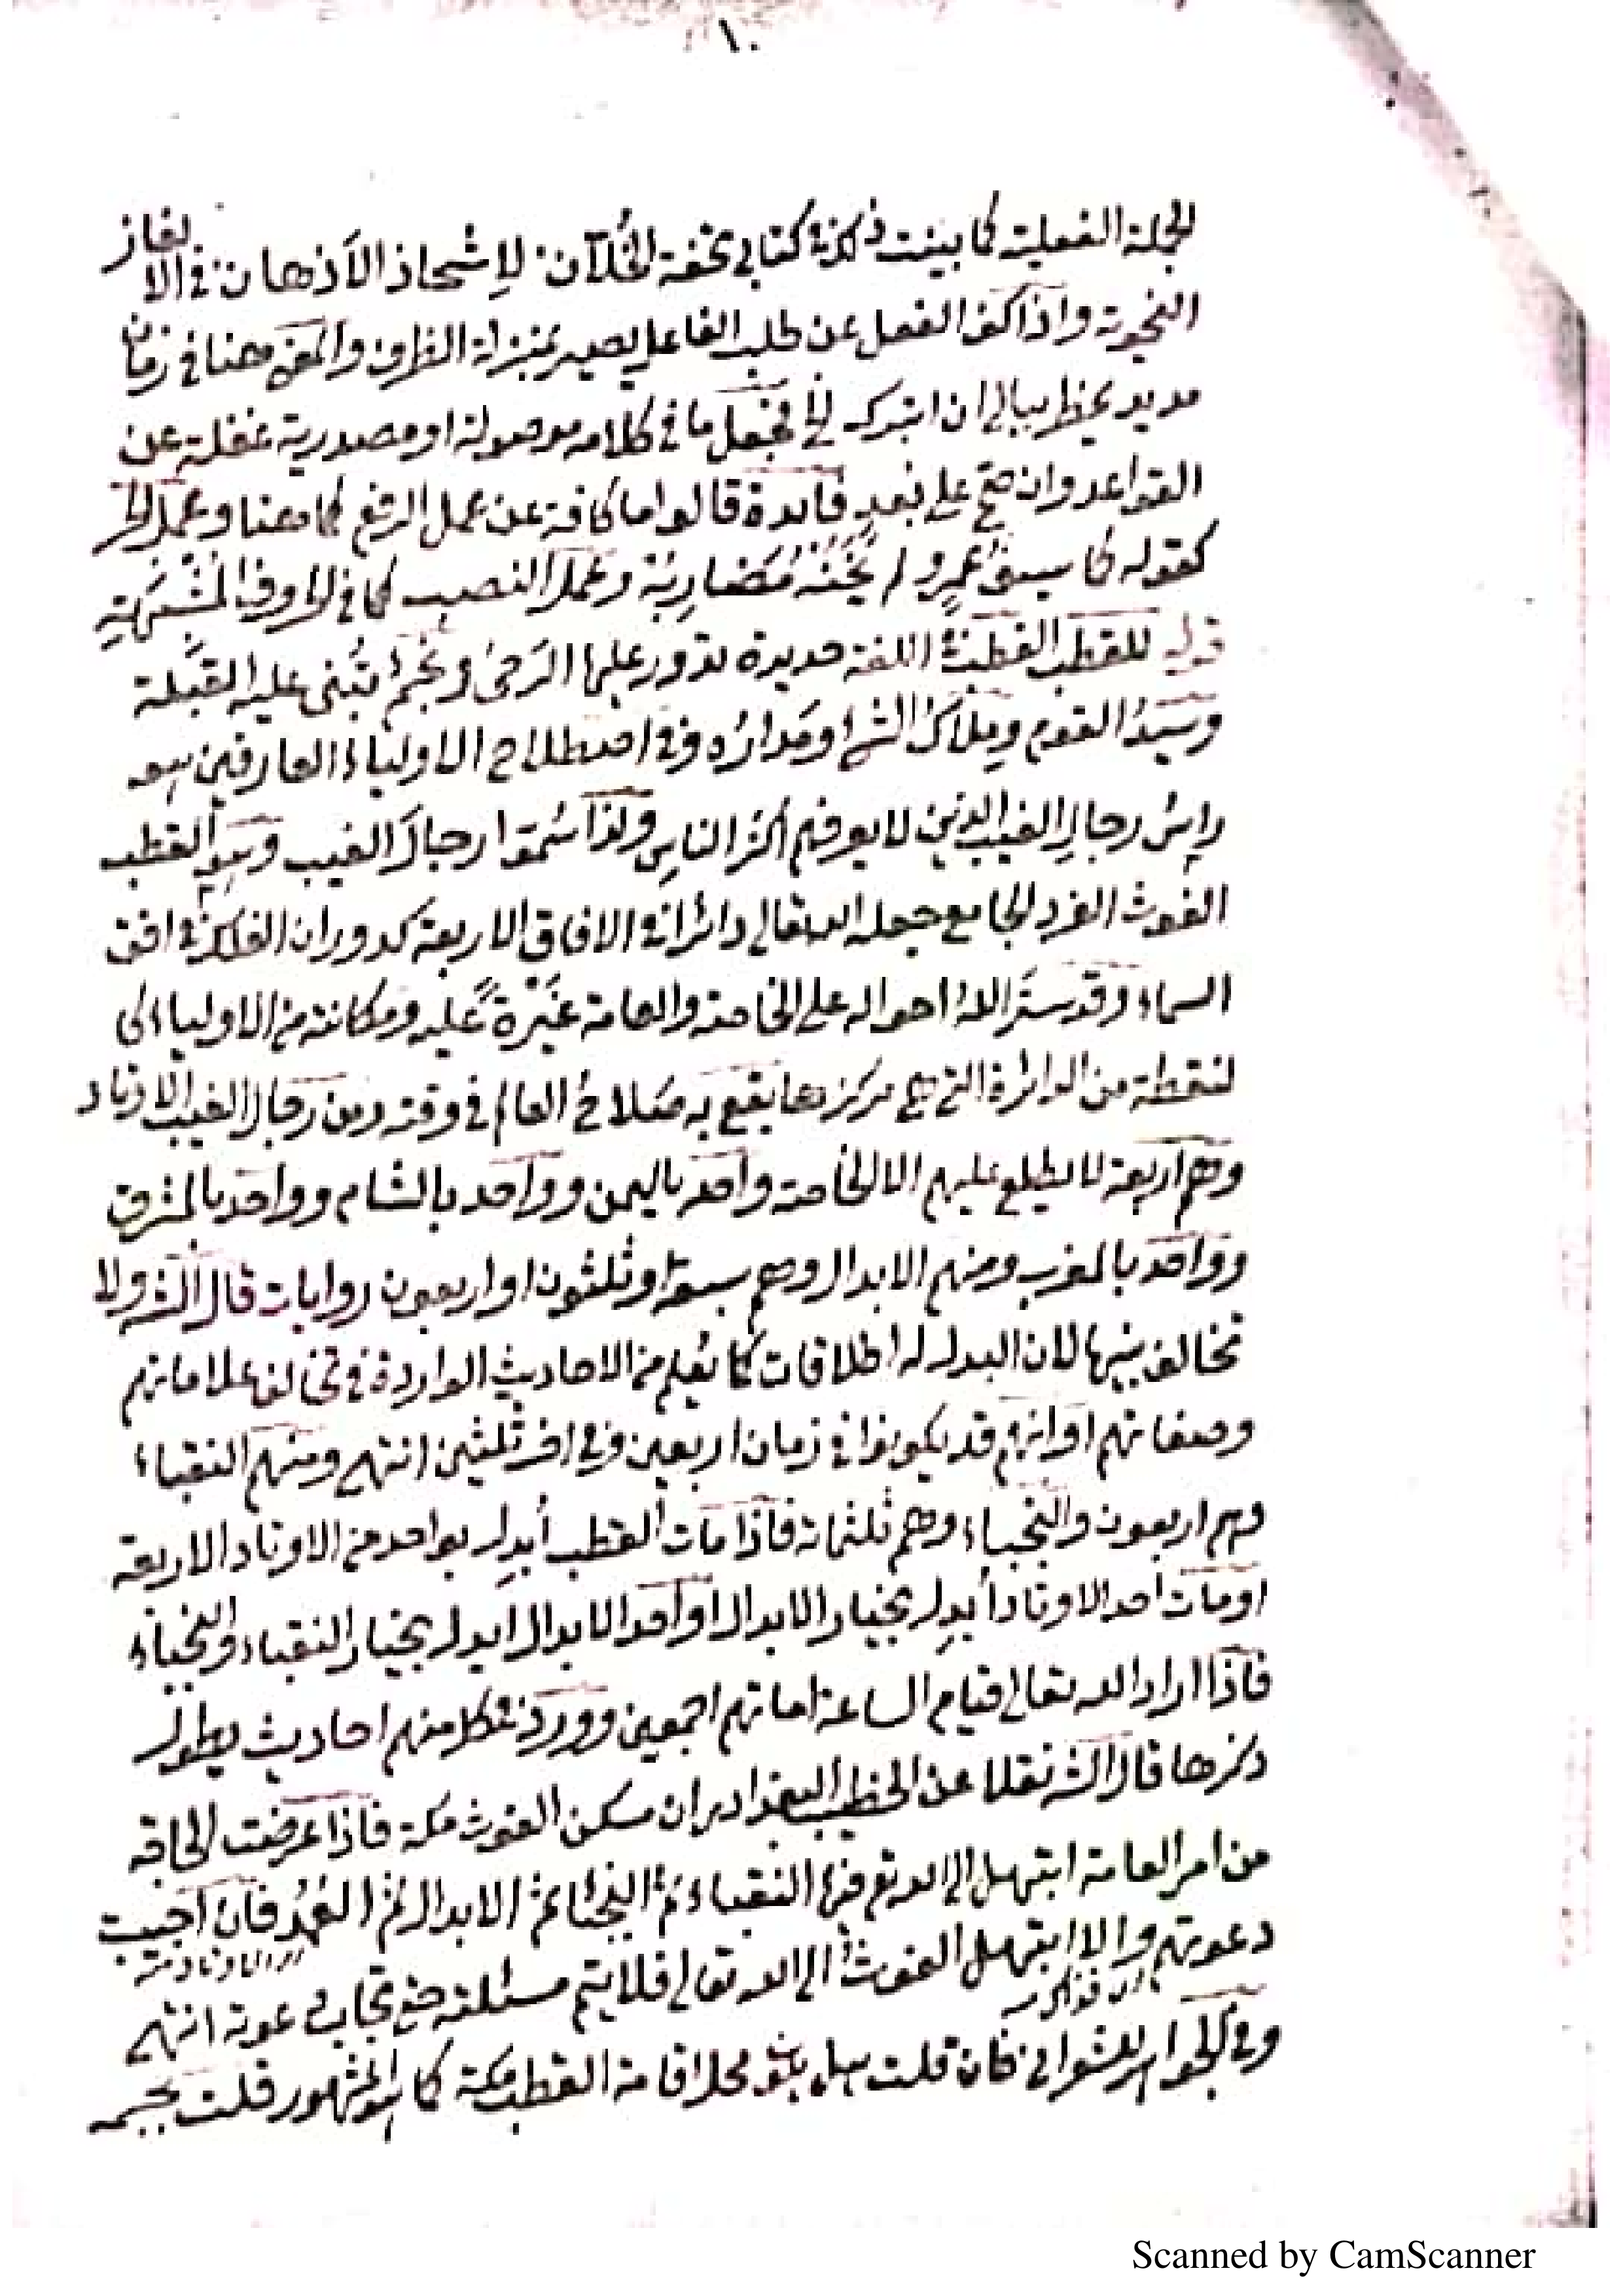 ١٠
الجملة الفعلية كما بينت ذلك في كتابي تحفة الخُلّان لإشحاذ الأذهان في الالغاز
النحوية واذا كف الفعل عن طلب الفاعل يصير بمنزلة الظرف والمعنى هنا في زمان
مديد يخطر ببالي ان اترك الخ فجعل ما في كلامه موصولة او مصدرية غفلة عن
القواعد وان صح على بُعدٍ فائدة قالوا ما كافة عن عمل الرفع كما هنا وعمل الجر
كقوله كما سيفُ عمرٍو لم تَخُنْه مَضارِبُه وعمل النصب كما في الحروف المشبهة
قوله للقطب القطب في اللغة حديدة تدور عليها الرَحى ونجم تُبنى عليه القبلة
وسيّدُ القوم ومِلاكُ الشيء ومَدارُه وفي اصطلاح الاولياء العارفين هو
راسُ رجالِ الغيب الذين لا يعرفهم اكثر الناس ولذا سُمّوا رجالَ الغيب وهو القطب
الغوث الفرد الجامع جعله الله تعالى دائرا في الافاق الاربعة كدوران الفلك في افق
السماء وقد ستَر اللهُ احواله على الخاصة والعامة غَيْرةً عليه ومكانته من الاولياء كـ
لنقطة من الدائرة التي هي مركزها يقع به صَلاحُ العالم في وقته ومن رجال الغيب الاوتاد
وهم اربعة لا يطلع عليهم الا الخاصة واحد باليمن وواحد بالشام وواحد بالمشرق
وواحد بالمغرب ومنهم الابدال وهم سبعة او ثلثون او اربعون روايات قال الش ولا
تخالف بينها لان البدل له اطلاقات كما يُعلم من الاحاديث الواردة في تخالف علاماتهم
وصفاتهم او انهم قد يكونوا في زمان اربعين وفي اخر ثلثين انتهى ومنهم النقباء
وهم اربعون والنجباء وهم ثلثمائة فاذا مات القطب أبدِل بواحد من الاوتاد الاربعة
او مات احد الاوتاد أبدِل بخيار الابدال او احد الابدال ابدل بخيار النقباء والنجباء
فاذا اراد الله تعالى قيام الساعة اماتهم اجمعين وورد في كل منهم احاديث يطول
ذكرها قال الش نقلا عن الخطيب البغدادي ان مسكن الغوث مكة فاذا عرضت الحاجة
من امر العامة ابتهل الى الله تع فيها النقباء ثم النجباء ثم الابدال ثم العُمُد فان اجيبت
اي الاوتاد منه
دعوتهم والا ابتهل الغوث الى الله تعالى فلا يتم مسئلته حتى تجاب دعوته انتهى
وفي الجواهر للشعراني فان قلت هل يكون محل اقامة القطب مكة كما هو المشهور قلت بجسمه